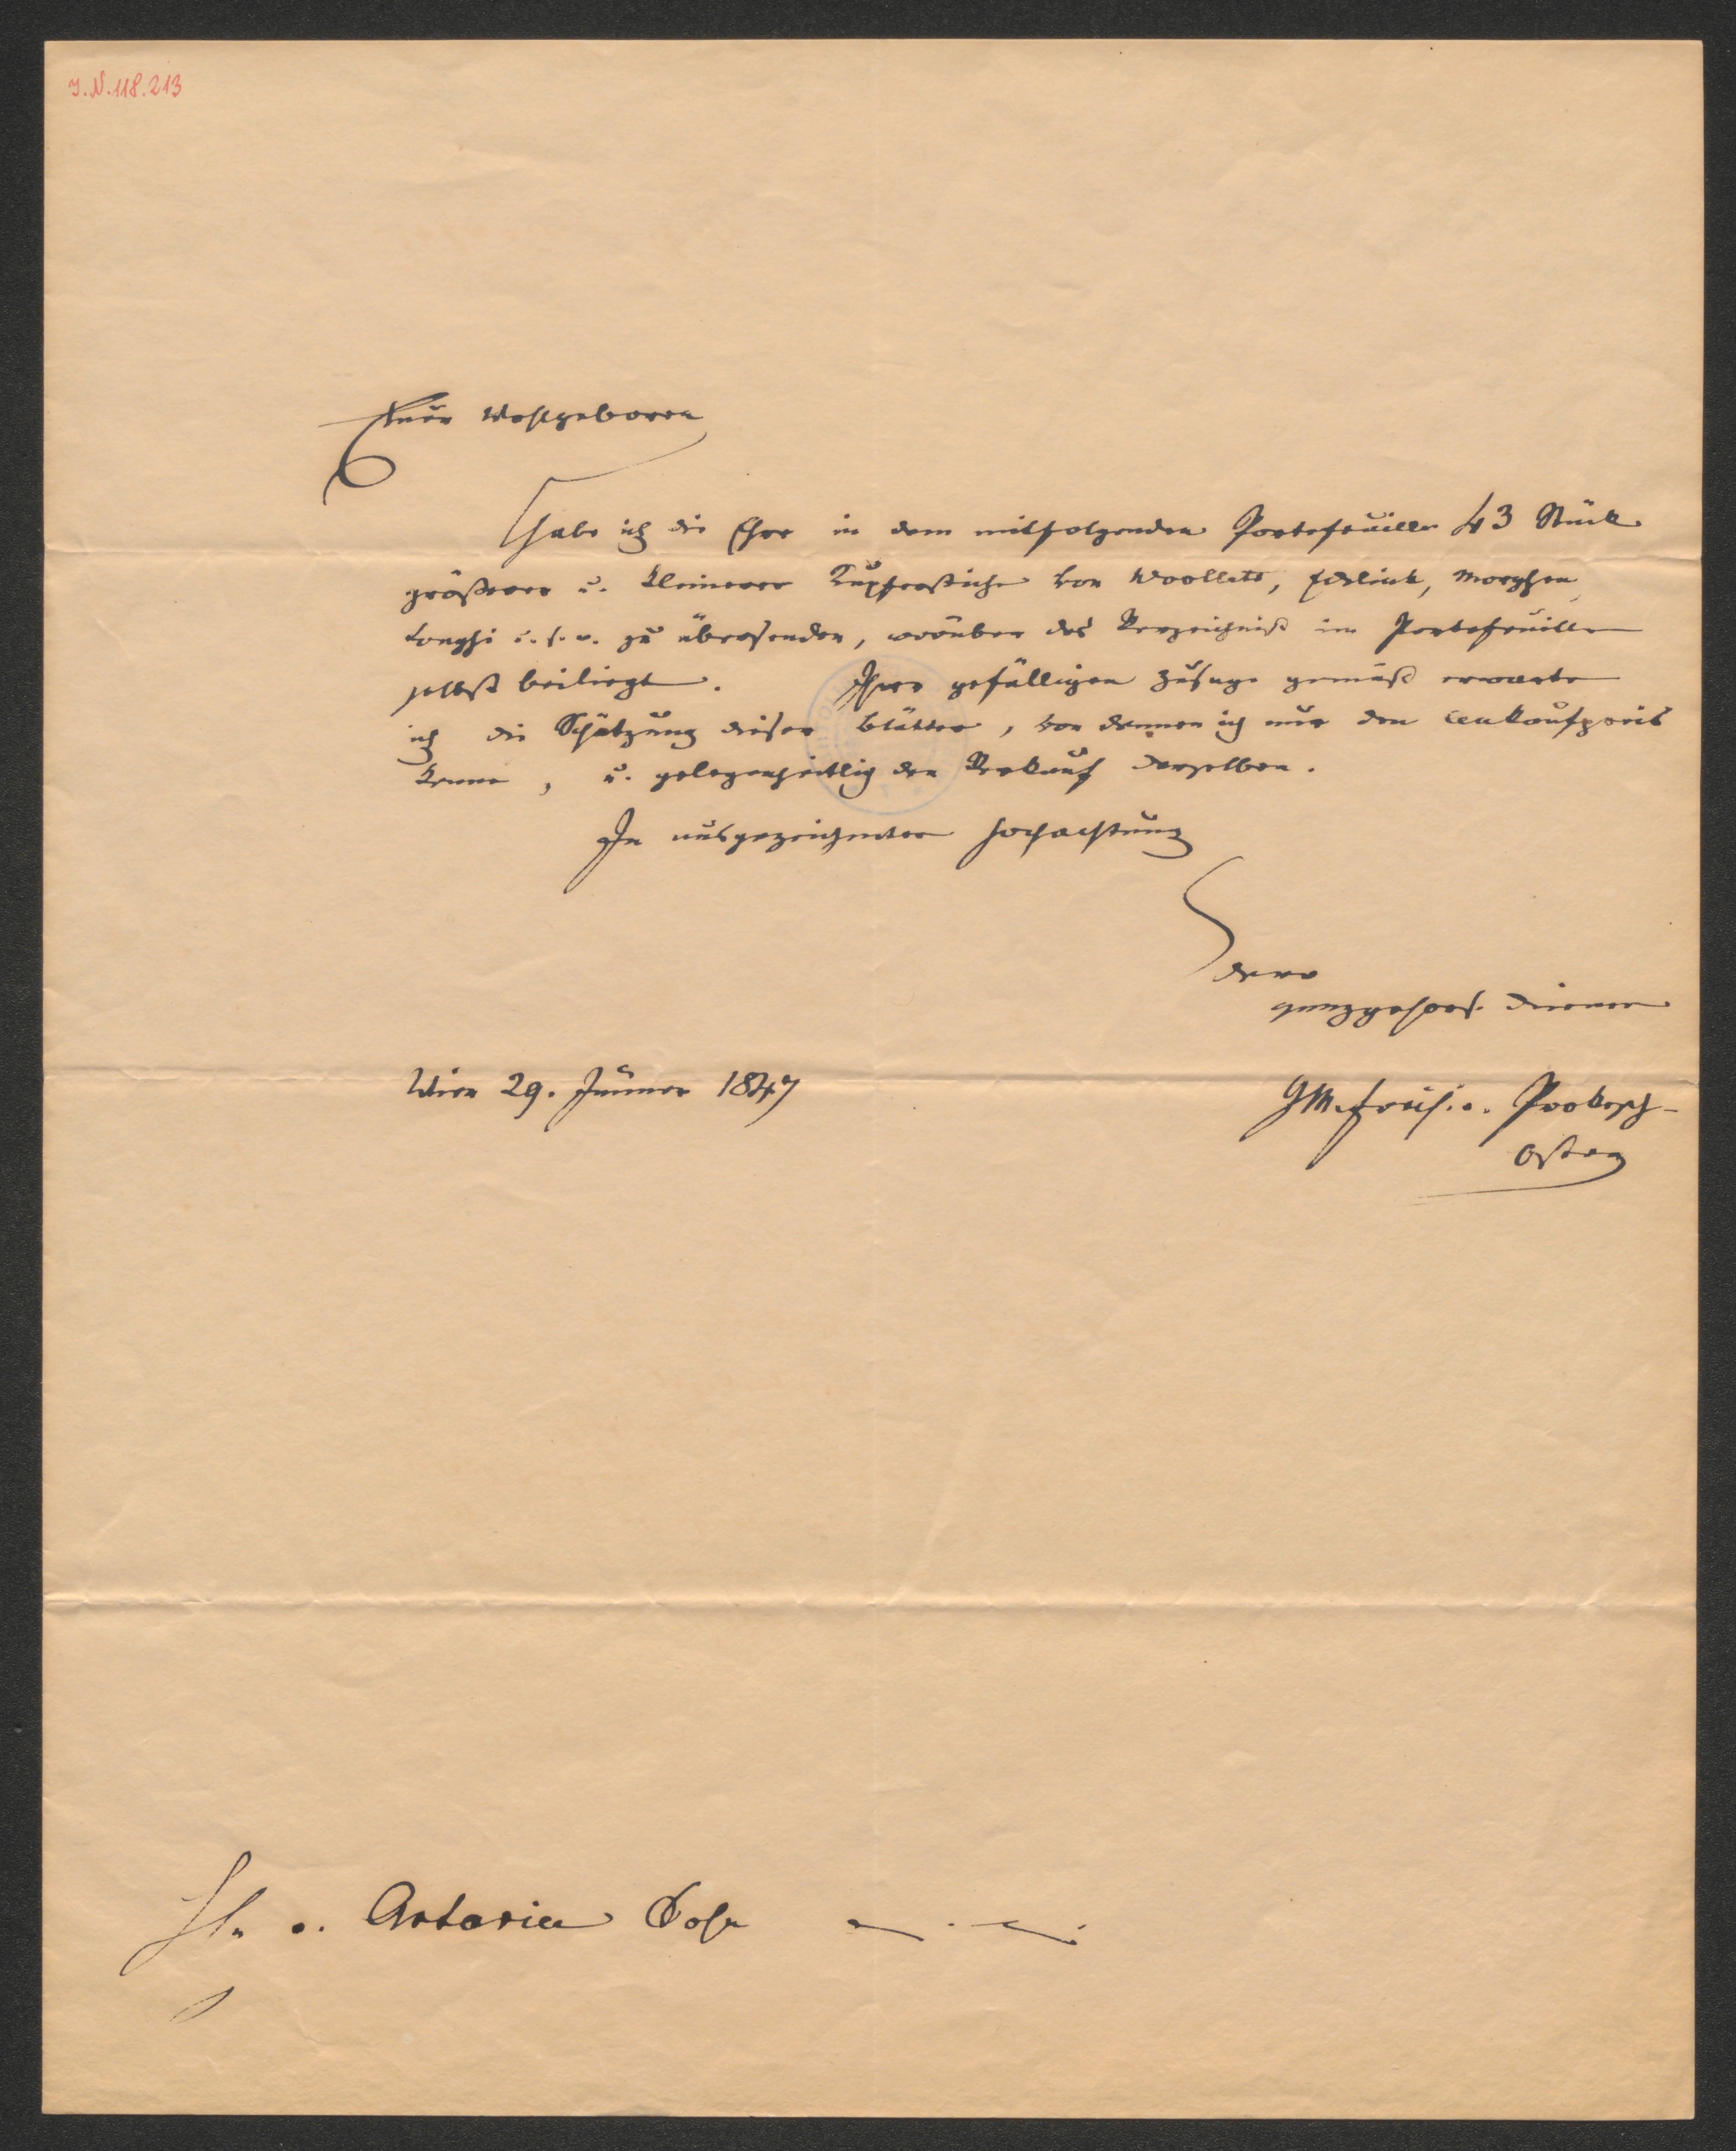 I.N. 118.213
Euer Wohlgeboren
habe ich die Ehre in dem mitfolgenden Portefeuille 43 Stück
größerer u. kleinerer Kupferstiche von Woollett, Edelink, Morghen,
Longhi u. s. w. zu übersenden, worüber das Verzeichniß im Portefeuille
selbst beiliegt. Ihrer gefälligen Zusage gemäß erwarte
ich die Schätzung dieser Blätter, von denen ich nur den Ankaufspreis
kenne, u. gelegenheitlich den Verkauf derselben.
In ausgezeichneter Hochachtung
Dero
ganzgehors. Diener
Wien 29. Jänner 1847
GM. Freih. v. Prokesch-
Osten
H. v. Artaria